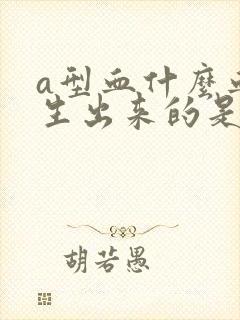 a型血什麼
生出来的是
胡若愚